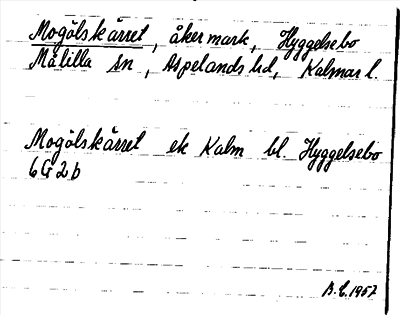 Mogölskärret, åkermark, Hyggelsebo
Målilla sn, Aspelands hd, Kalmar l.
Mogölskärret ek Kalm bl. Hyggelsebo
6G2b
B.E. 1957